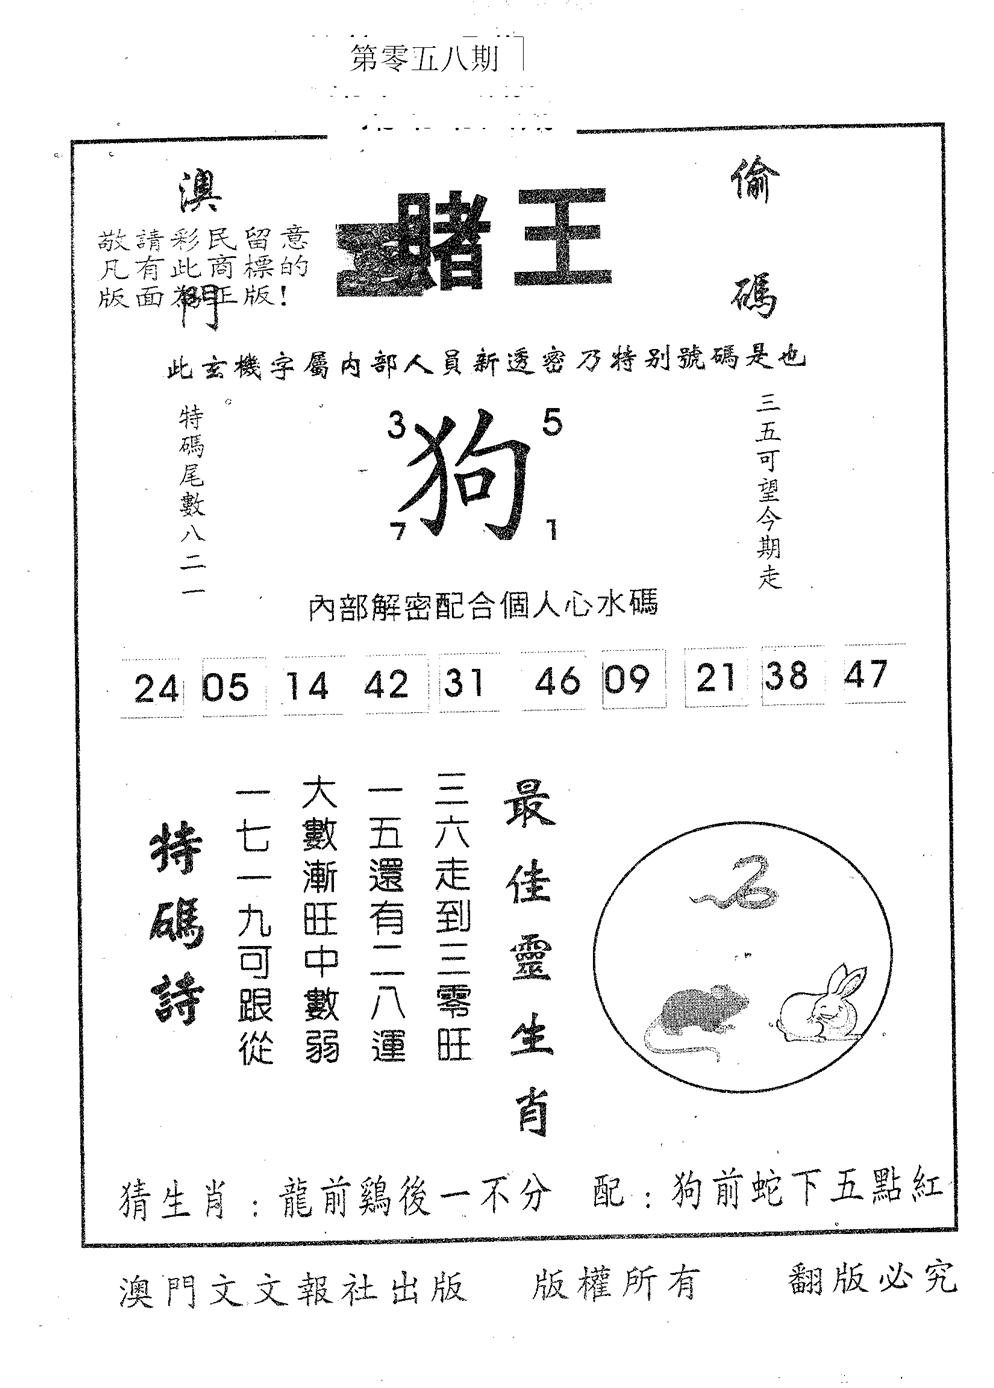 第零五八期
澳門
賭王
偷碼
敬請彩民留意
凡有此商標的
版面為正版!
此玄機字屬內部人員新透密乃特别號碼是也
特碼尾數八二一
3
5
狗
7
1
三五可望今期走
內部解密配合個人心水碼
24 05 14 42 31 46 09 21 38 47
最佳靈生肖
三六走到三零旺
一五還有二八運
大數漸旺中數弱
一七一九可跟從
特碼詩
猜生肖:龍前鷄後一不分 配:狗前蛇下五點紅
澳門文文報社出版 版權所有 翻版必究